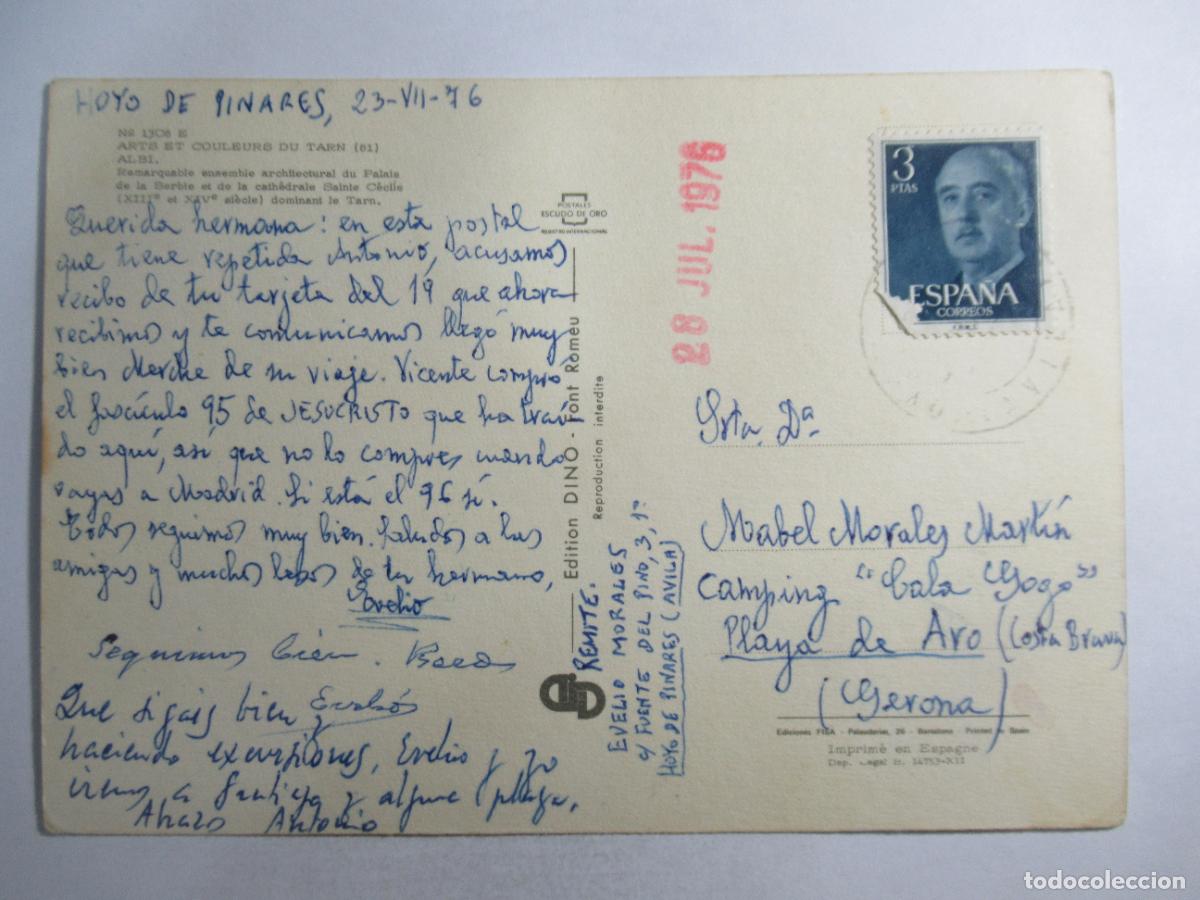 HOYO DE PINARES, 23-VII-76
Nº 1308 E
ARTS ET COULEURS DU TARN (81)
ALBI.
Remarquable ensemble architectural du Palais
de la Berbie et de la cathédrale Sainte Cécile
(XIIIe et XIVe siècle) dominant le Tarn.
POSTALES
ESCUDO DE ORO
REGISTRO INTERNACIONAL
Querida hermana: en esta postal
que tiene repetida Antonio, acusamos
recibo de tu tarjeta del 19 que ahora
recibimos y te comunicamos llegó muy
bien Merche de su viaje. Vicente compró
el fascículo 95 de JESUCRISTO que ha traí
do aquí, así que no lo compres cuando
vayas a Madrid. Si está el 96 sí.
Todos seguimos muy bien. Saludos a las
amigas y muchos besos de tu hermano,
Evelio
Seguimos bien. Besos
Que sigais bien y
haciendo excursiones, Evelio y yo
iremos a Santiago y alguna playa.
Abrazos Antonio
Edition DINO - Font Romeu
Reproduction interdite
REMITE.
EVELIO MORALES
c/ FUENTE DEL PINO, 3, 1º
HOYO DE PINARES (AVILA)
28 JUL. 1976
3
PTAS
ESPAÑA
CORREOS
F.N.M.T.
Srta. Dª
Mabel Morales Martín
Camping "Cala Gogo"
Playa de Aro (Costa Brava)
(Gerona)
Ediciones FISA - Palaudarias, 26 - Barcelona - Printed in Spain
Imprimé en Espagne
Dep. Legal B. 14753-XII
todocoleccion